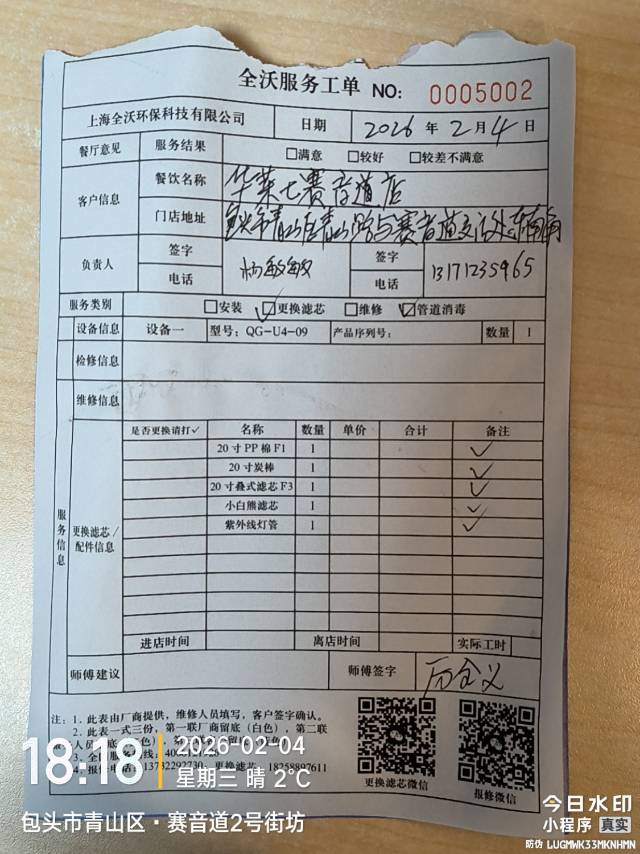 全沃服务工单 NO: 0005002
上海全沃环保科技有限公司 日期 2026 年 2 月 4 日
餐厅意见 服务结果 □满意 □较好 □较差不满意
客户信息 餐饮名称 华莱士赛音道店
门店地址 包头市青山区青山路与赛音道交汇处东南
负责人 签字 杨敏敏 签字
电话 电话 13171235965
服务类别 □安装 ☑更换滤芯 □维修 ☑管道消毒
设备信息 设备一 型号: QG-U4-09 产品序列号: 数量 1
检修信息
维修信息
服务信息
更换滤芯/配件信息
是否更换请打✓ 名称 数量 单价 合计 备注
20寸PP棉F1 1 ✓
20寸炭棒 1 ✓
20寸叠式滤芯F3 1 ✓
小白熊滤芯 1 ✓
紫外线灯管 1 ✓
进店时间 离店时间 实际工时
师傅建议 师傅签字
注: 1、此表由厂商提供，维修人员填写，客户签字确认。
2、此表一式三份，第一联厂商留底（白色），第二联
更换滤芯微信 报修微信
18:18 2026-02-04
星期三 晴 2℃
包头市青山区·赛音道2号街坊
今日水印
小程序 真实
防伪 LUGMWK33MKNHMN